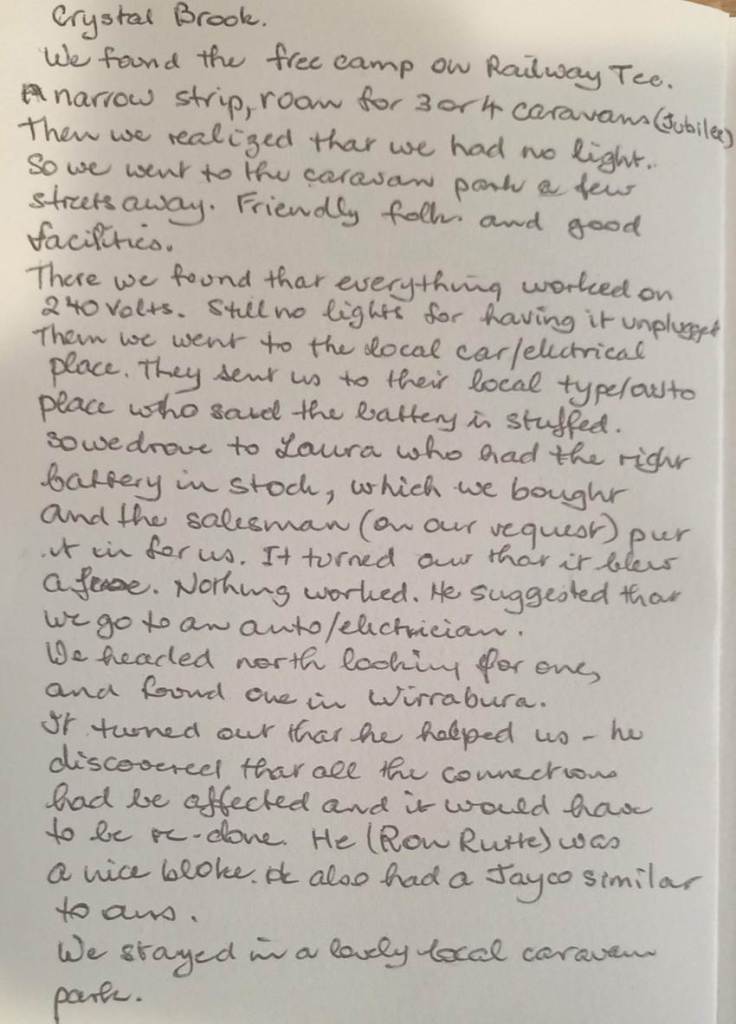 Crystal Brook.
We found the free camp on Railway Tce.
A narrow strip, room for 3 or 4 caravans (Jubilee)
Then we realized that we had no light.
So we went to the caravan park a few
streets away. Friendly folk. and good
facilities.
There we found that everything worked on
240 volts. Still no lights for having it unplugged
Them we went to the local car/electrical
place. They sent us to their local type/auto
place who said the battery is stuffed.
So we drove to Laura who had the right
battery in stock, which we bought
and the salesman (on our request) put
it in for us. It turned out that it blew
a fuse. Nothing worked. He suggested that
we go to an auto/electrician.
We headed north looking for one,
and found one in Wirrabura.
It turned out that he helped us - he
discovered that all the connections
had be affected and it would have
to be re-done. He (Ron Rutte) was
a nice bloke. He also had a Jayco similar
to ours.
We stayed in a lovely local caravan
park.